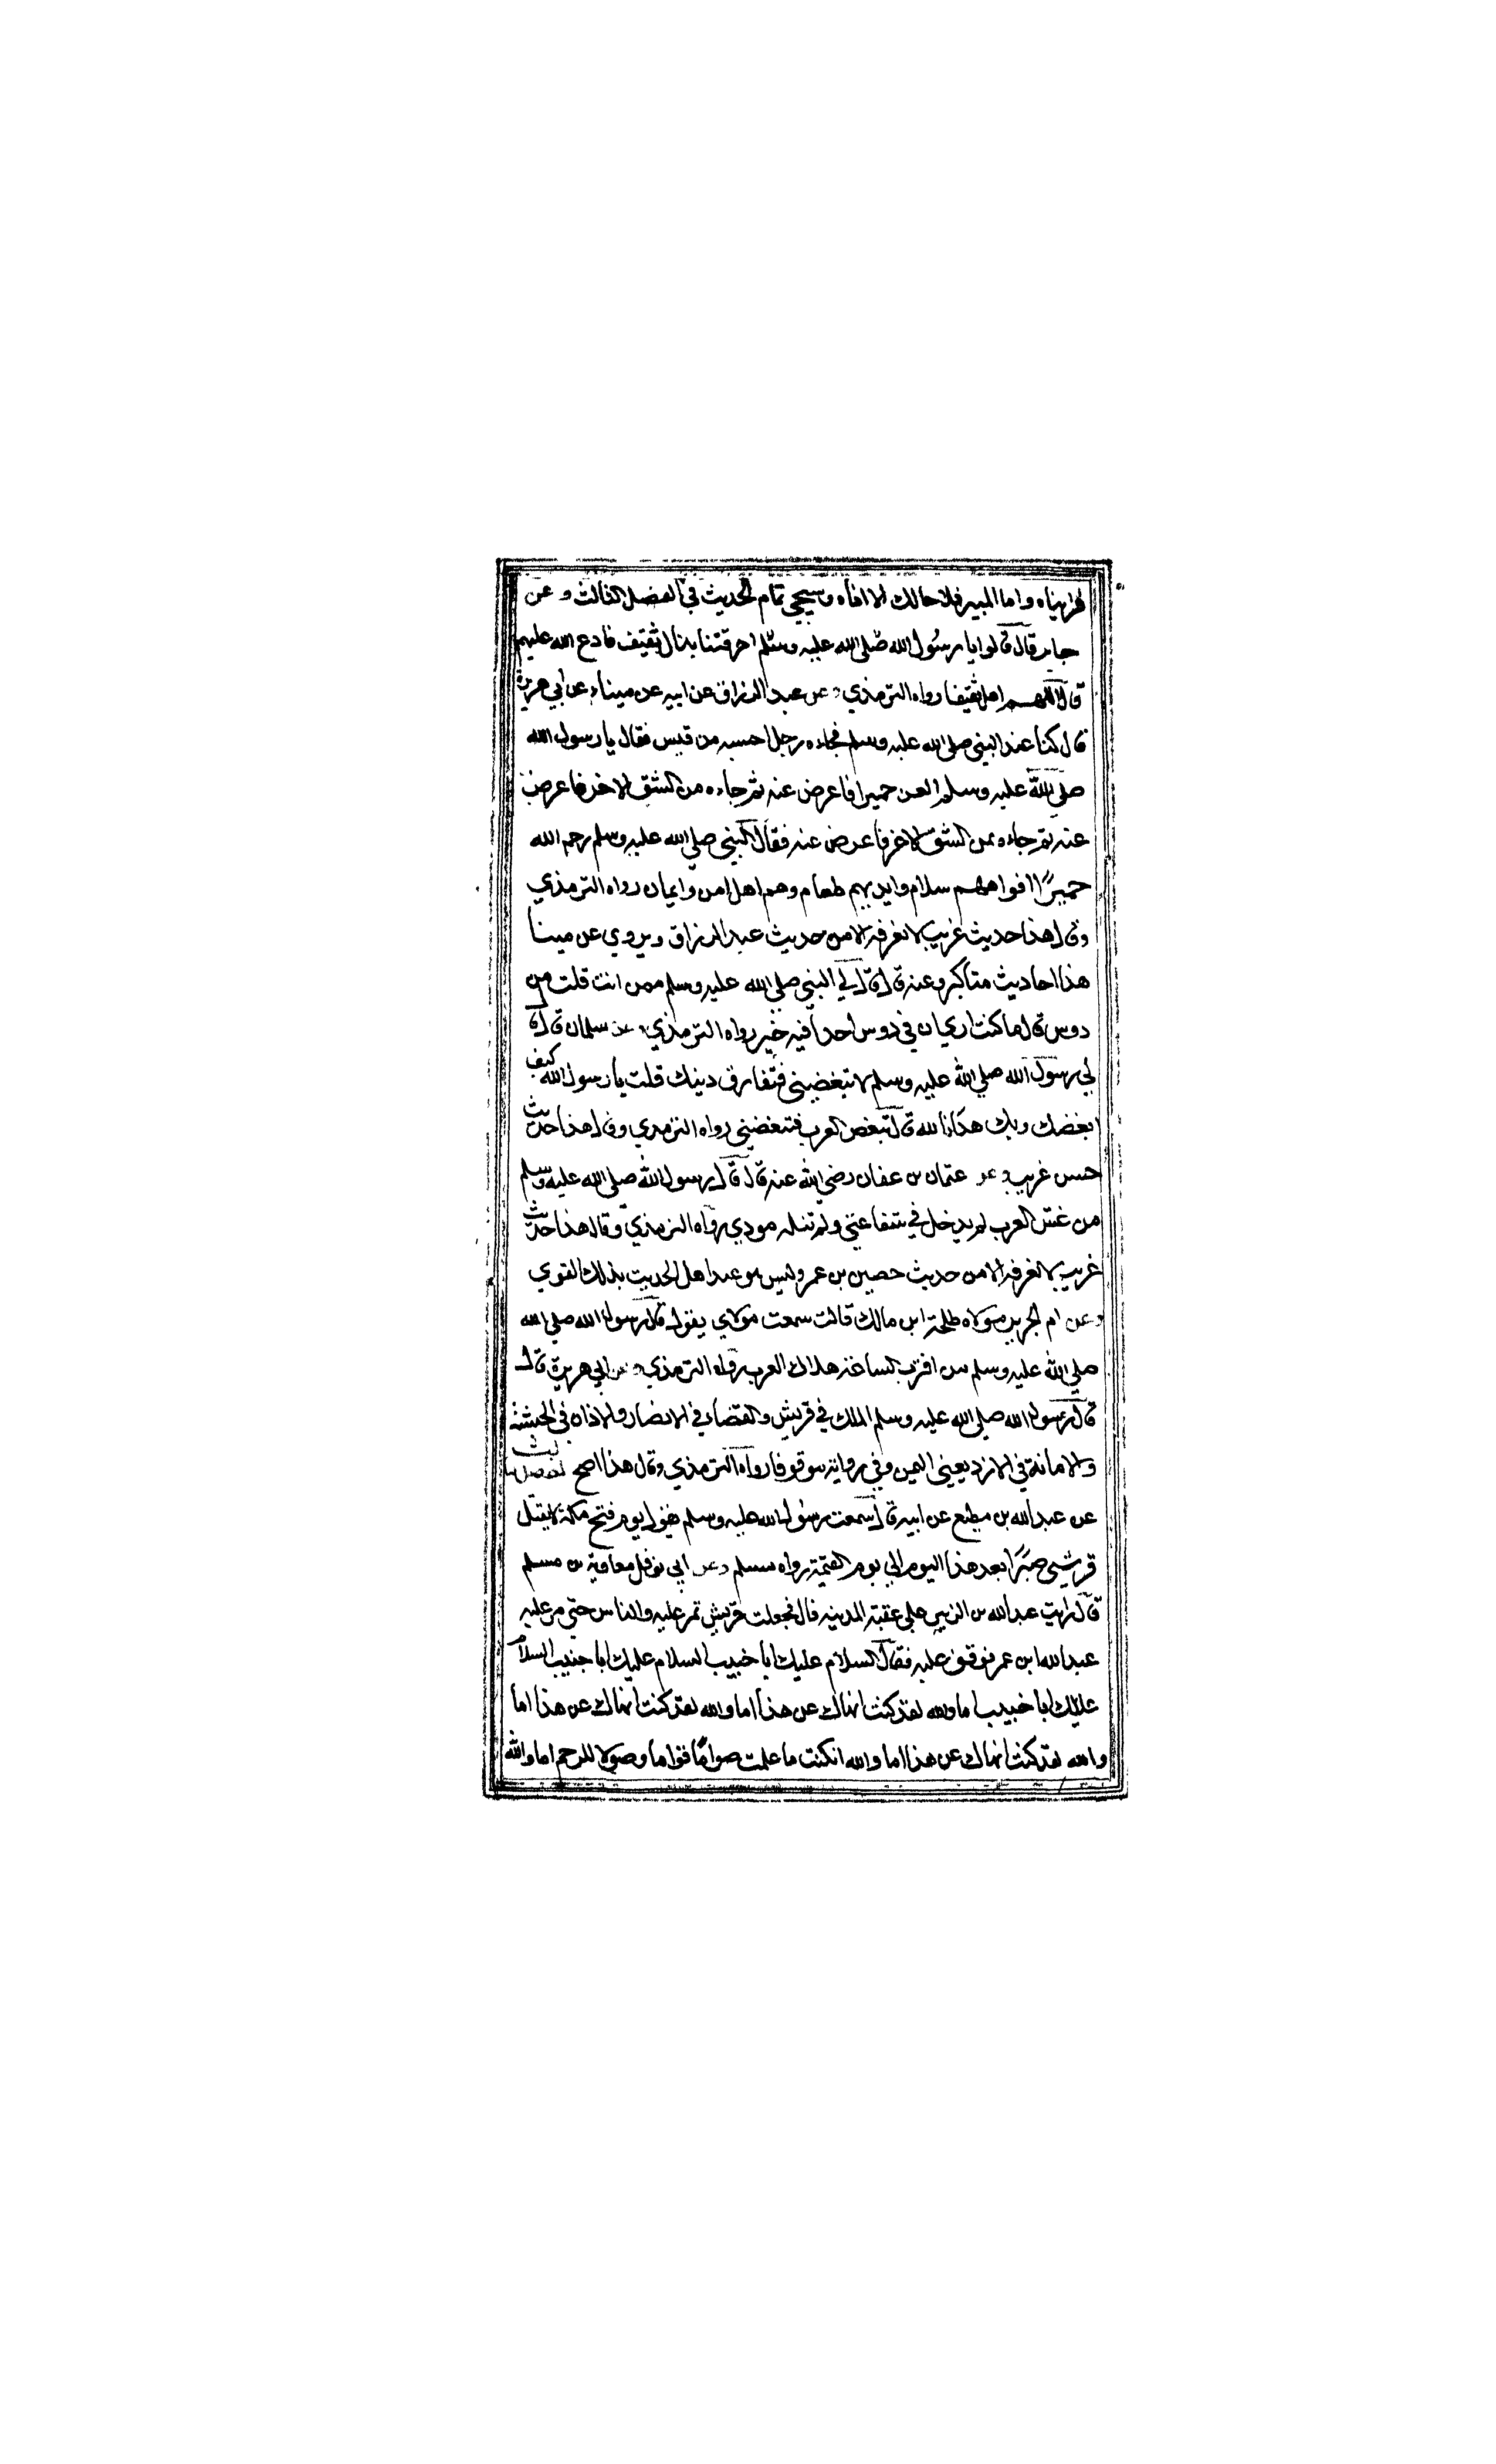 فرايناه واما المبير فلا اخالك الا اياه وسيجئ تمام الحديث في الفصل الثالث وعن
جابر قال قالوا يا رسول الله صلى الله عليه وسلم احرقتنا نبال ثقيف فادع الله عليهم
قال اللهم اهد ثقيفا رواه الترمذي وعن عبد الرزاق عن ابيه عن ميناء عن ابي هريرة
قال كنا عند النبي صلى الله عليه وسلم فجاءه رجل احسبه من قيس فقال يا رسول الله
صلى الله عليه وسلم العن حميرا فاعرض عنه ثم جاءه من الشق الاخر فاعرض
عنه ثم جاءه من الشق الاخر فاعرض عنه فقال النبي صلى الله عليه وسلم رحم الله
حميرًا افواههم سلام وايديهم طعام وهم اهل امن وايمان رواه الترمذي
وقال هذا حديث غريب لا نعرفه الا من حديث عبد الرزاق ويروي عن مينا
هذا احاديث مناكير وعنه قال قال لي النبي صلى الله عليه وسلم ممن انت قلت من
دوس قال ما كنت اري ان في دوس احدا فيه خير رواه الترمذي وعن سلمان قال قال
لي رسول الله صلى الله عليه وسلم لا تبغضني فتفارق دينك قلت يا رسول الله كيف
ابغضك وبك هدانا الله قال تبغض العرب فتبغضني رواه الترمذي وقال هذا حديث
حسن غريب وعن عثمان بن عفان رضي الله عنه قال قال رسول الله صلى الله عليه وسلم
من غش العرب لم يدخل في شفاعتي ولم تنله مودتي رواه الترمذي وقال هذا حديث
غريب لا نعرفه الا من حديث حصين بن عمر وليس هو عند اهل الحديث بذلك القوي
وعن ام الحرير مولاة طلحة ابن مالك قالت سمعت مولاي يقول قال رسول الله صلى الله
صلى الله عليه وسلم من اقتراب الساعة هلاك العرب رواه الترمذي وعن ابي هريرة قال
قال رسول الله صلى الله عليه وسلم الملك في قريش والقضاء في الانصار والاذان في الحبشة
والامانة في الازد يعني اليمن وفي رواية موقوفا رواه الترمذي وقال هذا اصح الفصل الثالث
عن عبد الله بن مطيع عن ابيه قال سمعت رسول الله عليه وسلم يقول يوم فتح مكة لا يقتل
قرشي صبرًا بعد هذا اليوم الي يوم القيمة رواه مسلم وعن ابي نوفل معاوية بن مسلم
قال رايت عبد الله بن الزبير علي عقبة المدينه قال فجعلت قريش تمر عليه والناس حتي مر عليه
عبد الله ابن عمر فوقف عليه فقال السلام عليك ابا خبيب السلام عليك ابا خبيب السلام
عليك ابا خبيب اما والله لقد كنت انهاك عن هذا اما والله لقد كنت انهاك عن هذا اما
والله لقد كنت انهاك عن هذا اما والله ان كنت ما علمت صوامًا قواما وصولا للرحم اما والله